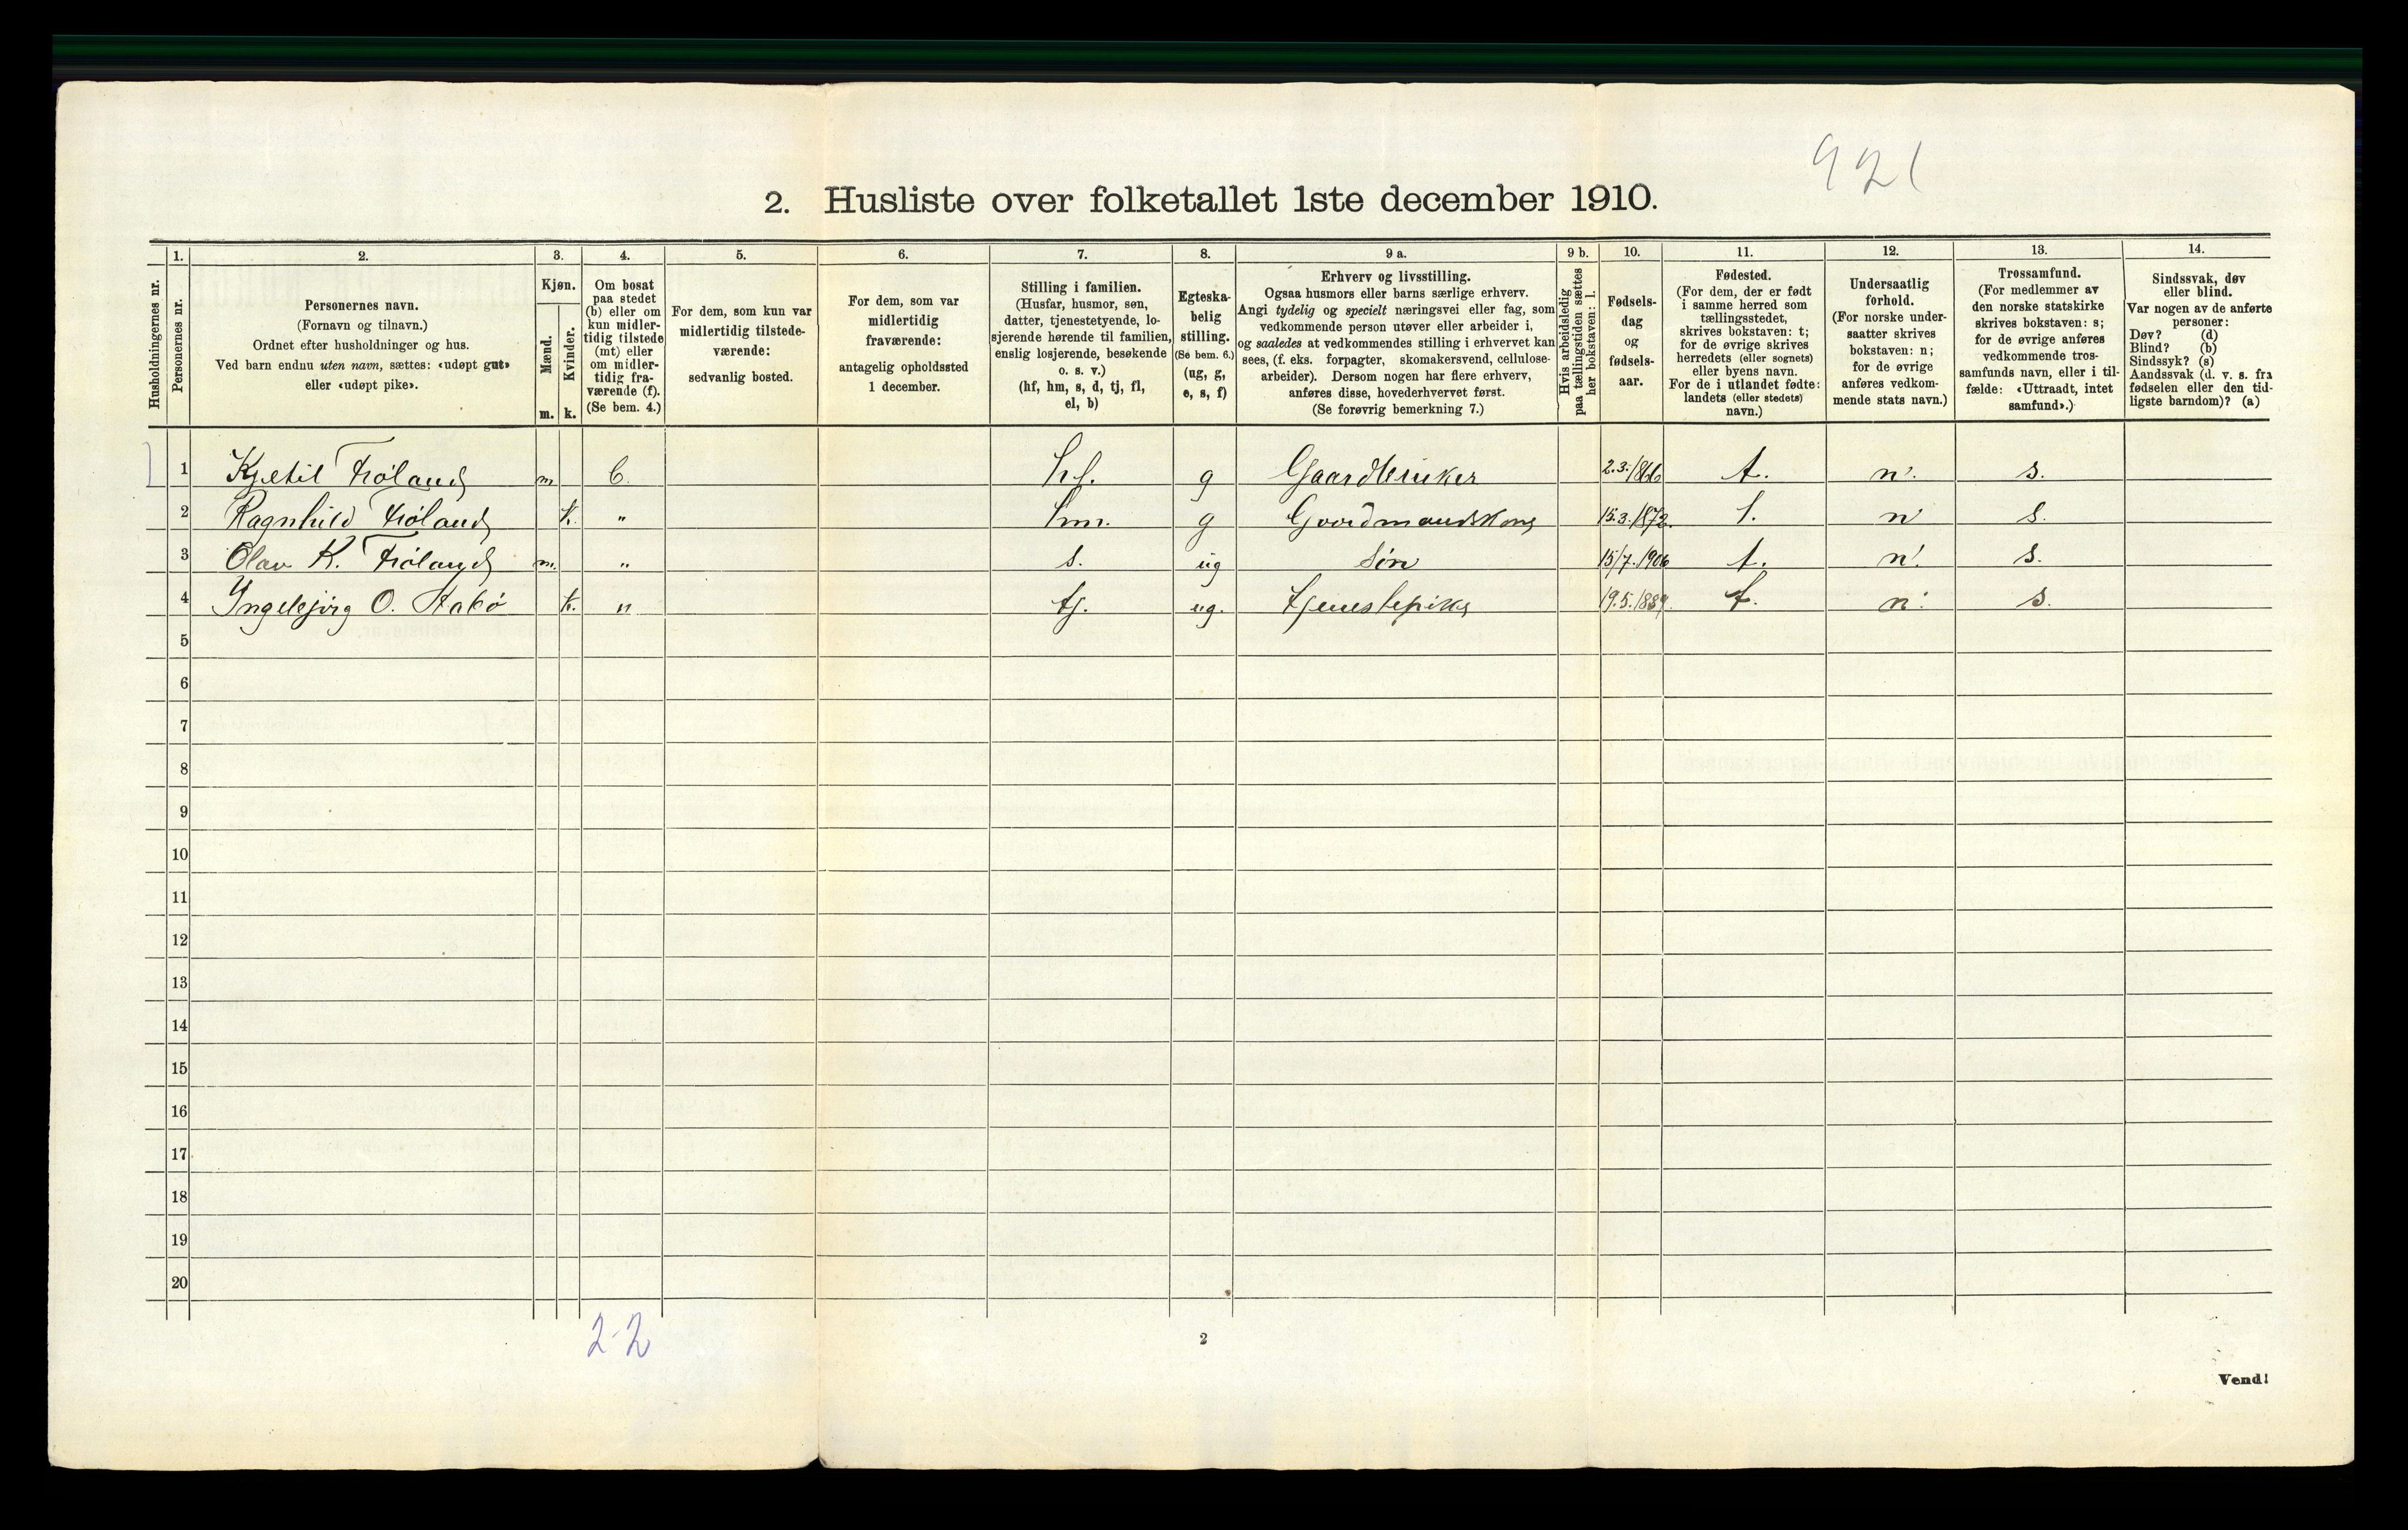 921
2. Husliste over folketallet 1ste december 1910.
Husholdningernes nr.
1. Personernes nr.
2. Personernes navn.
(Fornavn og tilnavn.)
Ordnet efter husholdninger og hus.
Ved barn endnu uten navn, sættes: «udøpt gut»
eller «udøpt pike».
3. Kjøn.
Mænd. m.
Kvinder. k.
4. Om bosat
paa stedet
(b) eller om
kun midler-
tidig tilstede
(mt) eller
om midler-
tidig fra-
værende (f).
(Se bem. 4.)
5. For dem, som kun var
midlertidig tilstede-
værende:
sedvanlig bosted.
6. For dem, som var
midlertidig
fraværende:
antagelig opholdssted
1 december.
7. Stilling i familien.
(Husfar, husmor, søn,
datter, tjenestetyende, lo-
sjerende hørende til familien,
enslig losjerende, besøkende
o. s. v.)
(hf, hm, s, d, tj, fl,
el, b)
8. Egteska-
belig
stilling.
(Se bem. 6.)
(ug, g,
e, s, f)
9 a. Erhverv og livsstilling.
Ogsaa husmors eller barns særlige erhverv.
Angi tydelig og specielt næringsvei eller fag, som
vedkommende person utøver eller arbeider i,
og saaledes at vedkommendes stilling i erhvervet kan
sees, (f. eks. forpagter, skomakersvend, cellulose-
arbeider). Dersom nogen har flere erhverv,
anføres disse, hovederhvervet først.
(Se forøvrig bemerkning 7.)
9 b. Hvis arbeidsledig
paa tællingstiden sættes
her bokstaven: l.
10. Fødsels-
dag
og
fødsels-
aar.
11. Fødested.
(For dem, der er født
i samme herred som
tællingsstedet,
skrives bokstaven: t;
for de øvrige skrives
herredets (eller sognets)
eller byens navn.
For de i utlandet fødte:
landets (eller stedets)
navn.)
12. Undersaatlig
forhold.
(For norske under-
saatter skrives
bokstaven: n;
for de øvrige
anføres vedkom-
mende stats navn.)
13. Trossamfund.
(For medlemmer av
den norske statskirke
skrives bokstaven: s;
for de øvrige anføres
vedkommende tros-
samfunds navn, eller i til-
fælde: «Uttraadt, intet
samfund».)
14. Sindssvak, døv
eller blind.
Var nogen av de anførte
personer:
Døv? (d)
Blind? (b)
Sindssyk? (s)
Aandssvak (d. v. s. fra
fødselen eller den tid-
ligste barndom)? (a)
1 Kjetil Frøland m b. hf. g Gaardbruker 2.3./866 t. n. s.
2 Ragnhild Frøland k. " hm. g 15.3./872. t. n s.
3 Olav K. Frøland m. " s. ug Søn 15/7./906 t. n. s.
4 Ingebjørg O. k. " tj. ug. Tjenestepike 19.5./889. t. n. s.
5
6
7
8
9
10
11
12
13
14
15
16
17
18
19
20
2-2
2
Vend!